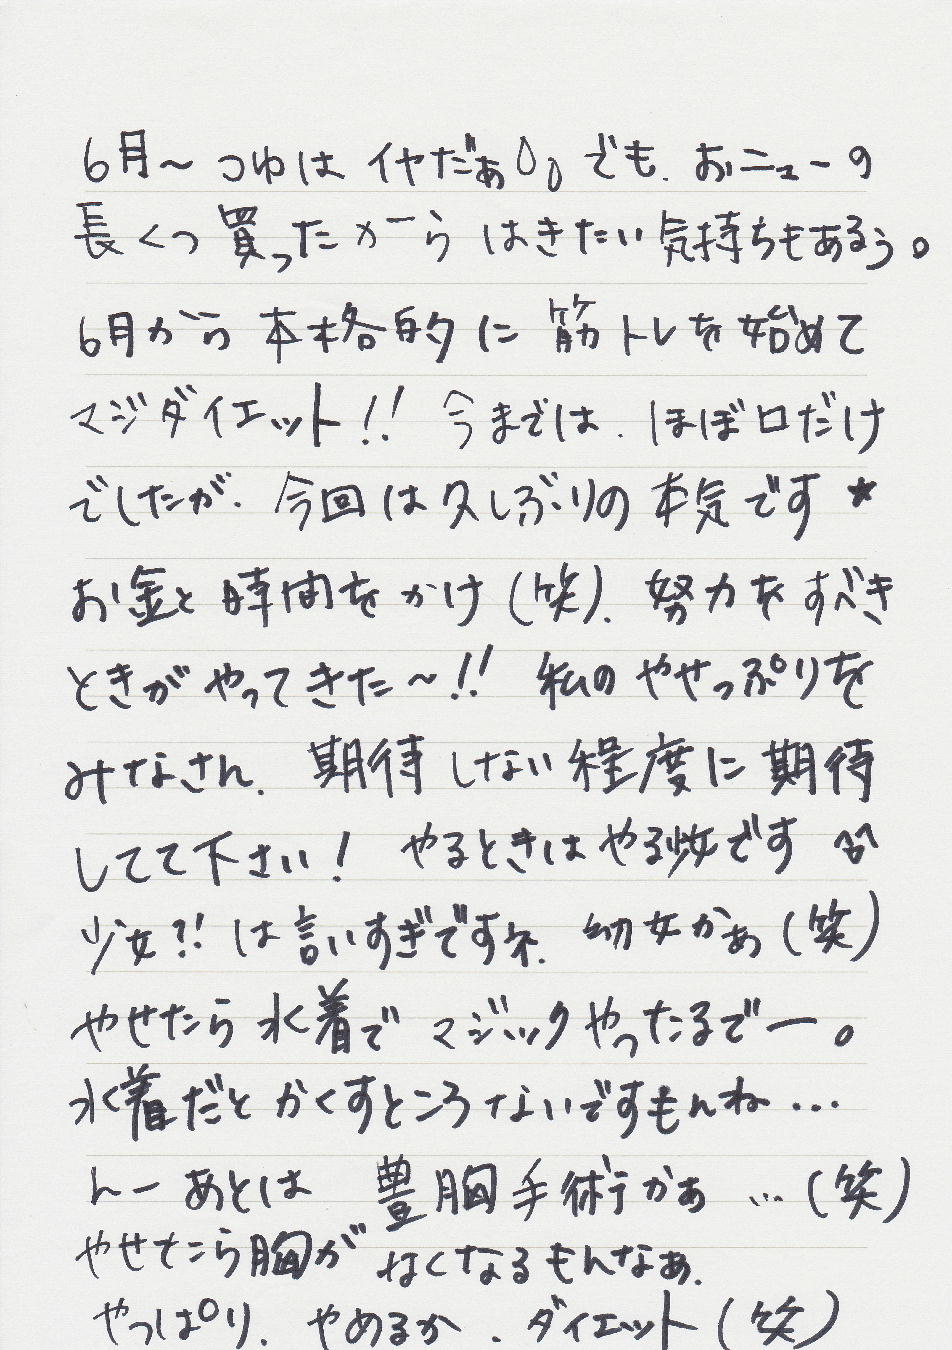 6月〜 つゆは イヤだぁ でも、おニューの
長くつ 買ったかーら はきたい 気持ちもあるぅ。
6月から 本格的に 筋トレを始めて
マジダイエット!! 今までは、ほぼ口だけ
でしたが、今回は久しぶりの本気です★
お金と時間をかけ(笑)、努力をすべき
ときがやってきた〜!! 私のやせっぷりを
みなさん、期待しない程度に期待
してて下さい! やるときは やる女です
少女?! は言いすぎですネ、幼女かぁ(笑)
やせたら水着で マジックやったるでー。
水着だと かくすところ ないですもんね…
んー あとは 豊胸手術かぁ …(笑)
やせたら胸が なくなるもんなぁ、
やっぱり、やめるか、ダイエット(笑)